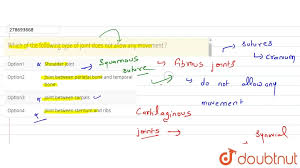 278693868
Which of the following type of joint does not allow any movement ?
Option1 Shoulder joint
Option2 Joint between parietal bone and temporal bone
Option3 Joint between tarsals
Option4 Joint between sternum and ribs
Squamous suture
→ fibrous joints
→ sutures
→ cranium
→ do not allow any movement
Cartilaginous joints →
→ Synovial
doubtnut